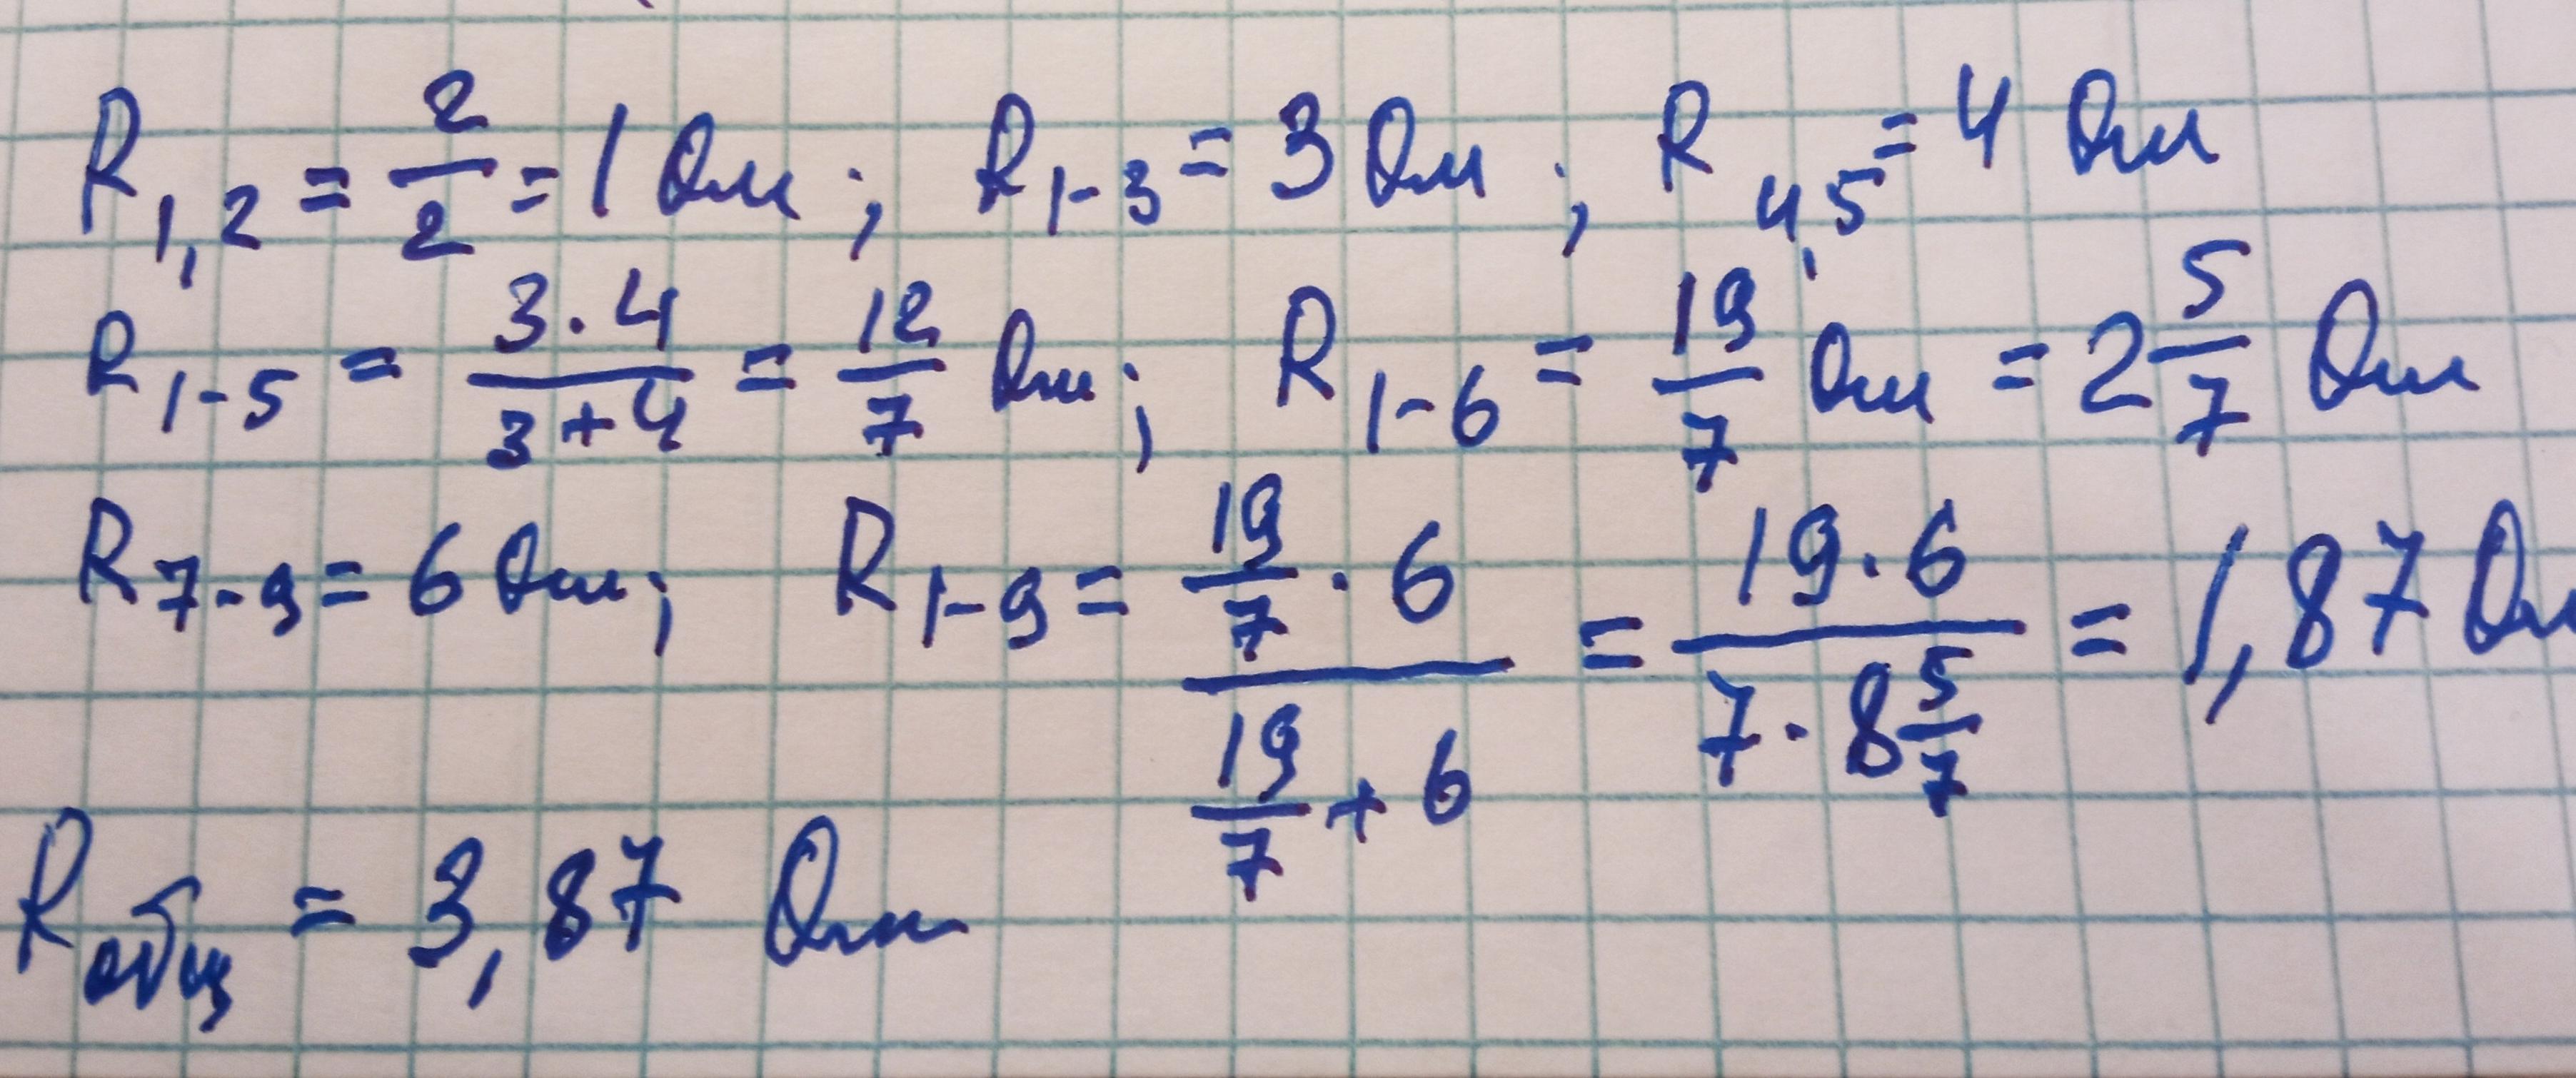 R1,2 = 2/2 = 1 Ом; R1-3 = 3 Ом; R4,5 = 4 Ом
R1-5 = (3·4)/(3+4) = 12/7 Ом; R1-6 = 19/7 Ом = 2 5/7 Ом
R7-9 = 6 Ом; R1-9 = (19/7 · 6)/(19/7 + 6) = (19·6)/(7·8 5/7) = 1,87 Ом
Rобщ = 3,87 Ом